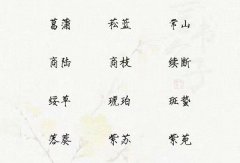 菖蒲 菘蓝 常山
商陆 商枝 续断
绥草 琥珀 斑蝥
落葵 紫苏 紫苑